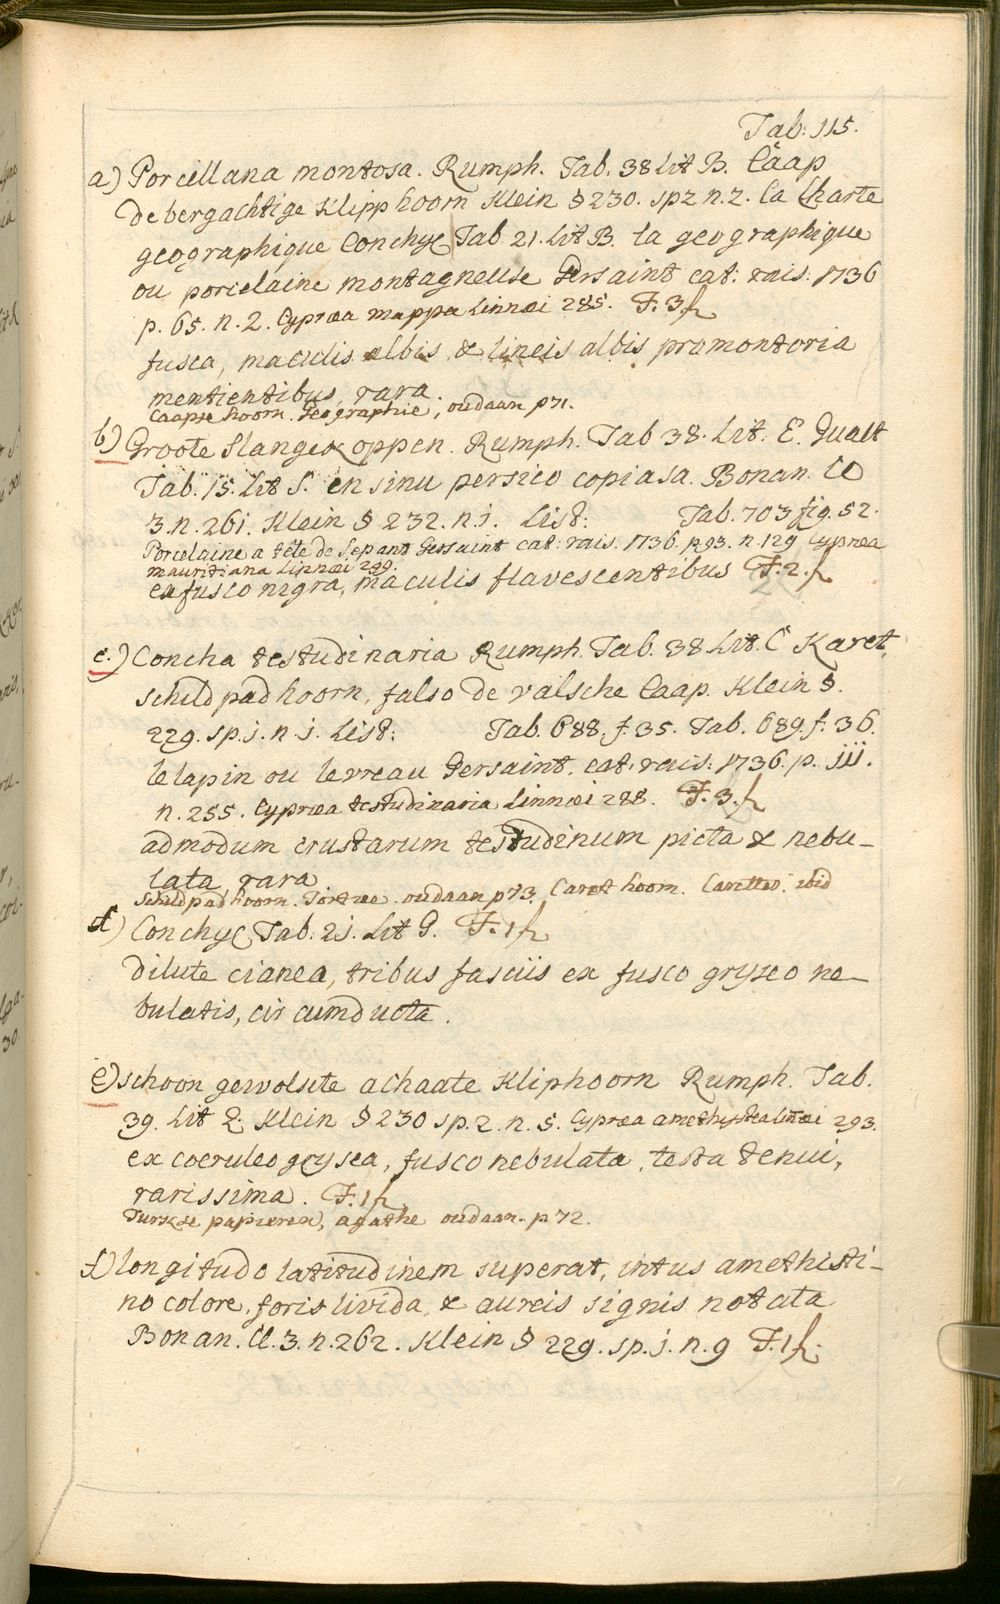 Tab: 115.
a) Porcellana montosa. Rumph. Tab. 38 Lit B. Caap
de bergachtige Klipp hoorn Klein § 230. sp2 n. 2. la Charte
geographique Conchyc Tab 21. Lit B. la geographique
ou porcelaine montagneuse Gersaint cat: rais: 1736
p. 65. n. 2. Cypræa mappa Linnæi 285. F. 3.
fusca, maculis albis, & lineis albis promontoria
mentientibus, rara.
Caapse hoorn. Geographie, oudaan p 71.
b) Groote Slangekoppen. Rumph. Tab 38. Lit. E. Gualt
Tab. 15. Lit S. in sinu persico copiasa. Bonan. Cl
3. n. 261. Klein § 232. n. j. List: Tab. 703 fig. 52.
Porcelaine a tête de Sepant Gersaint cat: rais. 1736. p93. n. 129 Cypræa
mauritiana Linnæi 299.
ex fusco nigra, maculis flavescentibus F. 2.
c.) Concha testudinaria Rumph. Tab. 38 Lit. C Karet,
schildpad hoorn, falso de valsche Caap. Klein §.
229. sp. j. n. j. List: Tab. 688. f. 35. Tab. 689. f. 36.
le lapin ou levreau Gersaint. cat. rais: 1736. p. jjj.
n. 255. Cypræa testudinaria Linnæi 288. F. 3.
admodum crustarum testudinum picta & nebu-
lata rara
Schildpad hoorn. Tortue. oudaan p 73. Caret hoorn. ibid
d) Conchyc Tab: 21. Lit G. F. 1
dilute cianea, tribus fasciis ex fusco gryseo ne-
bulatis, circumducta.
e) schoon gewolkte achaate Kliphoorn Rumph. Tab.
39. Lit Q. Klein § 230 sp. 2. n. 5. Cypræa amethystea Linæi 293.
ex coeruleo grysea, fusco nebulata, testa tenui,
rarissima. F. 1
Turkse papieren, agathe oudaan. p 72.
f) longitudo latitudinem superat, intus amethisti-
no colore, foris livida, & aureis signis notata
Bonan. Cl. 3. n. 262. Klein § 229. sp. j. n. 9 F. 1